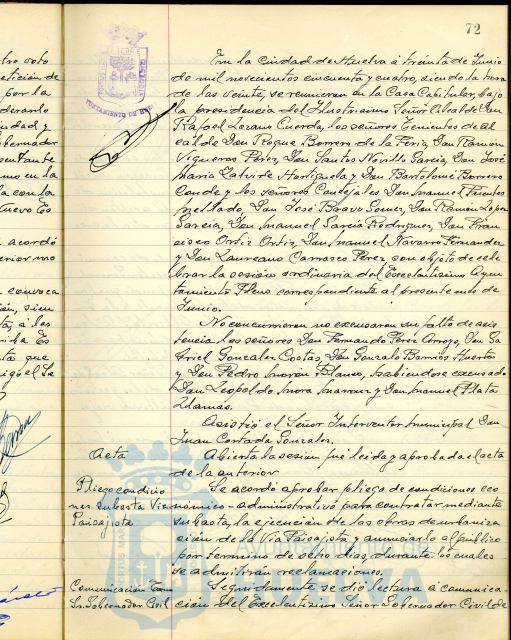 72
En la ciudad de Huelva a treinta de Junio
de mil novecientos cincuenta y cuatro, siendo la hora
de las veinte, se reunieron en la Casa Capitular, bajo
la presidencia del Ilustrisimo Señor Alcalde Don
Rafael Lozano Cuerda, los señores Tenientes de Al
calde Don Roque Borrero de la Feria, Don Ramon
Vigueras Pérez, Don Santos Novillo Garcia, Don José
Maria Don Bartolomé Borrero
Conde y los señores Concejales Don Manuel Fuentes
Don José Bravo Gomez, Don Ramon Lopez
Garcia, Don Manuel Garcia Rodriguez, Don Fran
cisco Ortiz Ortiz, Don Manuel Navarro Fernandez
y Don Laureano Carrasco Pérez, con objeto de cele
brar la sesión ordinaria del Excelentisimo Ayun
tamiento Pleno correspondiente al presente mes de
Junio.
No concurrieron no excusaron su falta de asis
tencia los señores Don Fernando Pérez Arroyo, Don Ga
briel Gonzalez Costas, Don Gonzalo Barrios Huertas
y Don Pedro Morón Blanco, habiendose excusado
Don Leopoldo Mora y Don Manuel Plata
Llamas.
Asistió el Señor Interventor Municipal Don
Juan Cortada Gonzalez.
Acta
Abierta la sesion fué leida y aprobada el acta
de la anterior
Pliego condicio
nes subasta Via
Paisajista
Se acordó aprobar pliego de condiciones eco
nómico-administrativo para contratar mediante
subasta, la ejecución de las obras de urbaniza
ción de la Via Paisajista y anunciarlo al público
por término de ocho dias, durante los cuales
se admitiran reclamaciones.
Comunicación
Sr. Gobernador Civil
Seguidamente se dió lectura a comunica
ción del Excelentisimo Señor Gobernador Civil de